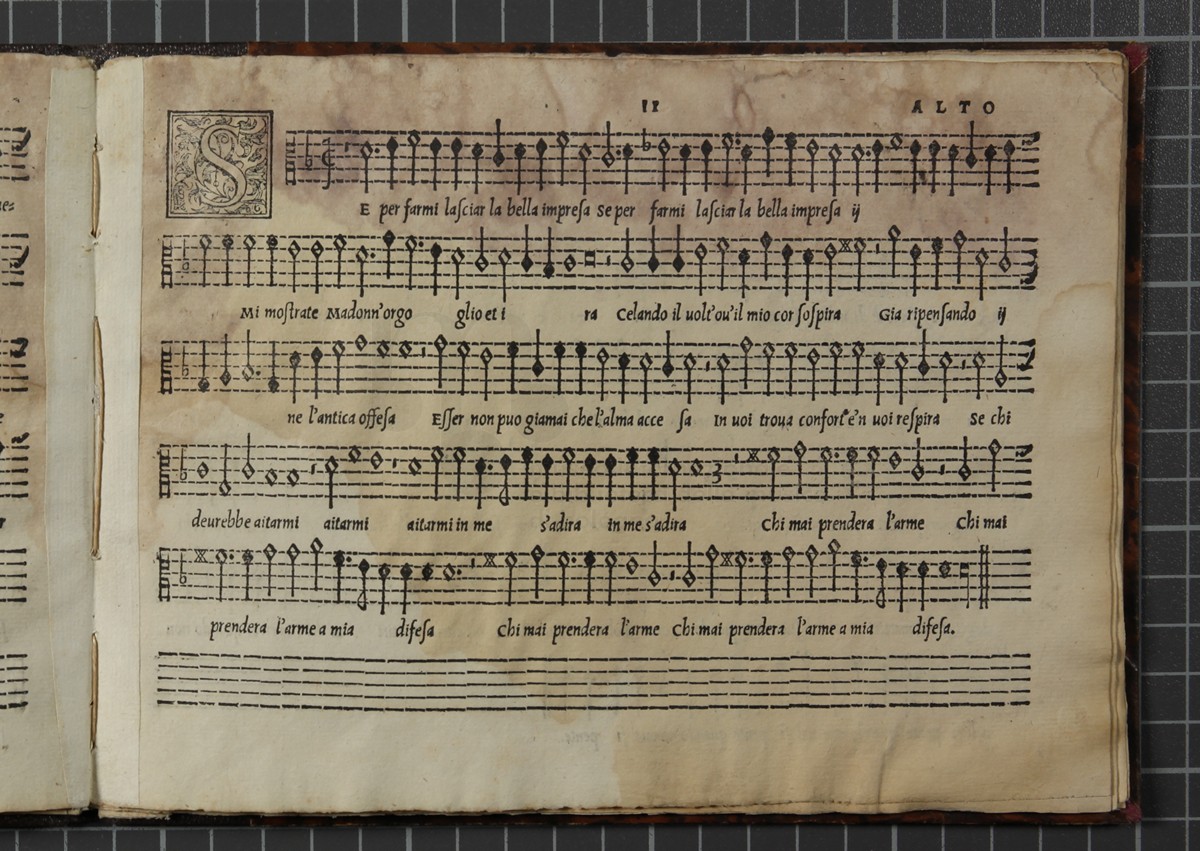 11 ALTO
SE per farmi laſciar la bella impreſa Se per farmi laſciar la bella impreſa ij
Mi moſtrate Madonn'orgo glio et i ra Celando il uolt'ou'il mio cor ſoſpira Gia ripenſando ij
ne l'antica offeſa Eſſer non puo giamai che l'alma acce ſa In uoi troua confort'e'n uoi reſpira Se chi
deurebbe aitarmi aitarmi aitarmi in me s'adira in me s'adira Chi mai prendera l'arme Chi mai
prendera l'arme a mia difeſa Chi mai prendera l'arme Chi mai prendera l'arme a mia difeſa.